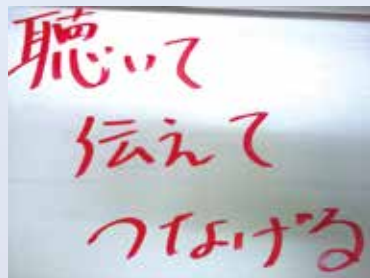 聴いて
伝えて
つなげる